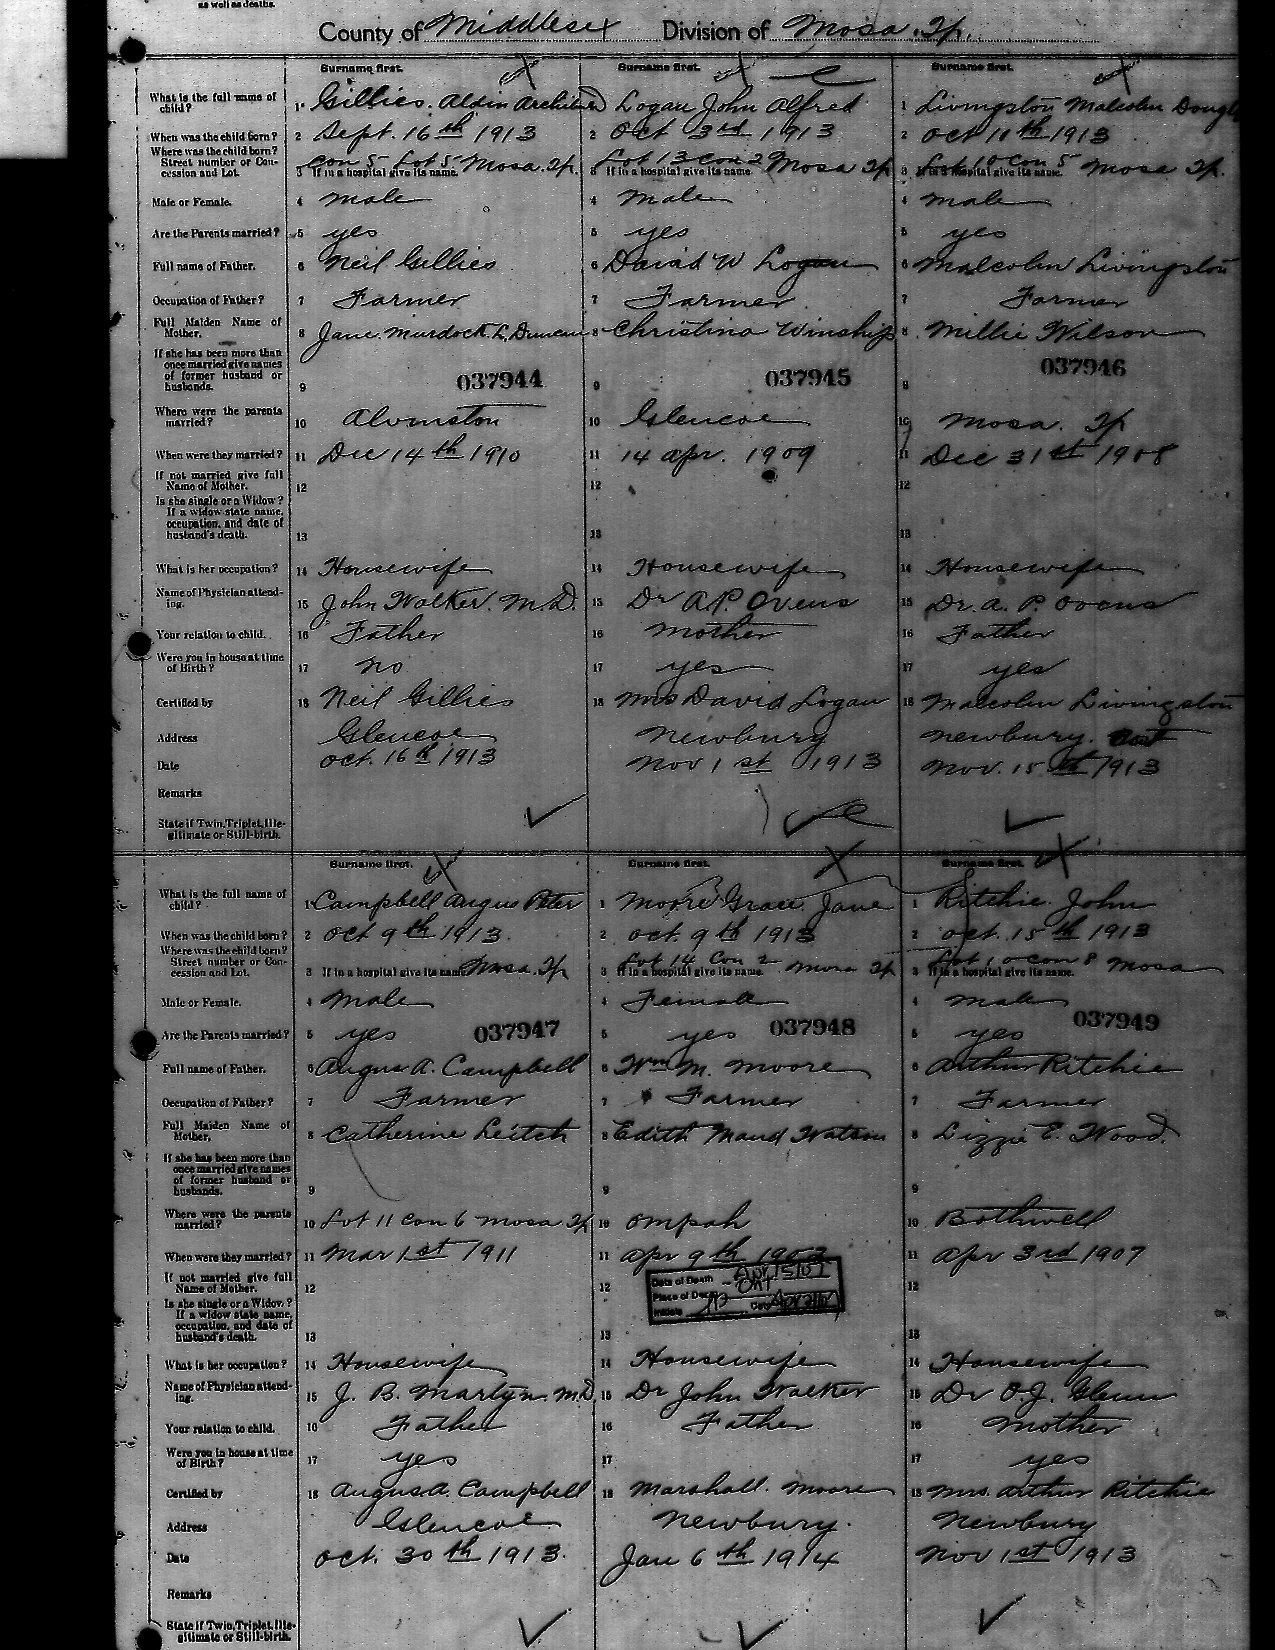 as well as deaths.
County of Middlesex Division of Mosa. Tp.
Surname first. Surname first. Surname first.
What is the full name of child? 1 Gillies. Aldin Archibald 1 Logan John Alfred 1 Livingston Malcolm Dougl
When was the child born? 2 Sept. 16th 1913 2 Oct 3rd 1913 2 Oct 11th 1913
Where was the child born? Street number or Concession and Lot. 3 If in a hospital give its name. Con 5 Lot 5 Mosa. Tp. 3 If in a hospital give its name. Lot 13 Con 2 Mosa Tp 3 If in a hospital give its name. Lot 10 Con 5 Mosa Tp.
Male or Female. 4 Male 4 Male 4 Male
Are the Parents married? 5 yes 5 yes 5 yes
Full name of Father. 6 Neil Gillies 6 David W Logan 6 Malcolm Livingston
Occupation of Father? 7 Farmer 7 Farmer 7 Farmer
Full Maiden Name of Mother. 8 Jane Murdock L. Duncan 8 Christina Winship 8 Millie Wilson
If she has been more than once married give names of former husband or husbands. 9 037944 9 037945 9 037946
Where were the parents married? 10 Alvinston 10 Glencoe 10 Mosa. Tp
When were they married? 11 Dec 14th 1910 11 14 Apr. 1909 11 Dec 31st 1908
If not married give full Name of Mother. 12 12 12
Is she single or a Widow? If a widow state name, occupation, and date of husband's death. 13 13 13
What is her occupation? 14 Housewife 14 Housewife 14 Housewife
Name of Physician attending. 15 John Walker. M.D. 15 Dr A.P. Ovens 15 Dr. A. P. Ovens
Your relation to child. 16 Father 16 Mother 16 Father
Were you in house at time of Birth? 17 no 17 yes 17 yes
Certified by 18 Neil Gillies 18 Mrs David Logan 18 Malcolm Livingston
Address Glencoe Newbury Newbury. Ont
Date Oct. 16th 1913 Nov 1st 1913 Nov. 15th 1913
Remarks
State if Twin, Triplet, Illegitimate or Still-birth.
Surname first. Surname first. Surname first.
What is the full name of child? 1 Campbell Angus Peter 1 Moore Grace Jane 1 Ritchie John
When was the child born? 2 Oct 9th 1913. 2 Oct. 9th 1913 2 Oct. 15th 1913
Where was the child born? Street number or Concession and Lot. 3 If in a hospital give its name. Mosa. Tp 3 If in a hospital give its name. Lot 14 Con 2 Mosa Tp 3 If in a hospital give its name. Lot 10 Con 8 Mosa
Male or Female. 4 Male 4 Female 4 Male
Are the Parents married? 5 yes 037947 5 yes 037948 5 yes 037949
Full name of Father. 6 Angus A. Campbell 6 Wm M. Moore 6 Arthur Ritchie
Occupation of Father? 7 Farmer 7 Farmer 7 Farmer
Full Maiden Name of Mother. 8 Catherine Leitch 8 Edith Maud Watson 8 Lizzie E. Wood.
If she has been more than once married give names of former husband or husbands. 9 9 9
Where were the parents married? 10 Lot 11 Con 6 Mosa Tp 10 Ompah 10 Bothwell
When were they married? 11 Mar 1st 1911 11 Apr 9th 11 Apr 3rd 1907
If not married give full Name of Mother. 12 12 Date of Death Place of Death Ont Initials Date 12
Is she single or a Widow? If a widow state name, occupation, and date of husband's death. 13 13 13
What is her occupation? 14 Housewife 14 Housewife 14 Housewife
Name of Physician attending. 15 J. B. Martyn. M.D. 15 Dr John Walker 15 Dr O.J. Glenn
Your relation to child. 16 Father 16 Father 16 Mother
Were you in house at time of Birth? 17 yes 17 17 yes
Certified by 18 Angus A. Campbell 18 Marshall. Moore 18 Mrs. Arthur Ritchie
Address Glencoe Newbury. Newbury
Date Oct. 30th 1913. Jan 6th 1914 Nov 1st 1913
Remarks
State if Twin, Triplet, Illegitimate or Still-birth.